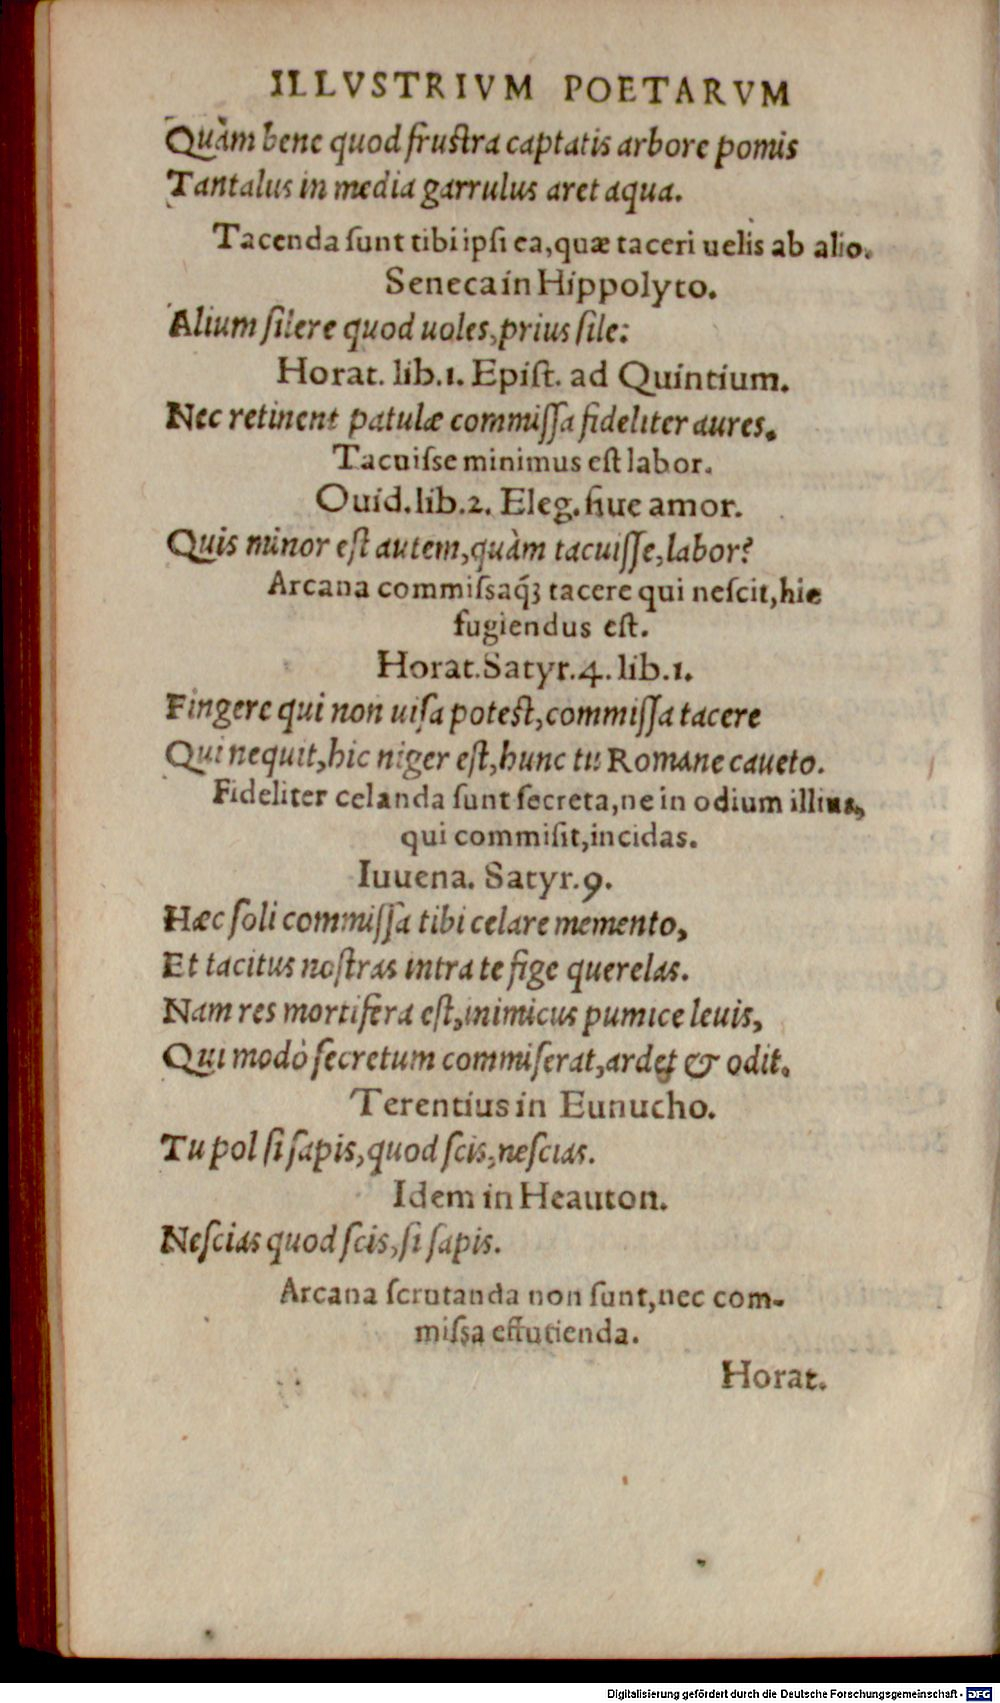 ILLVSTRIVM POETARVM
Quàm bene quod frustra captatis arbore pomis
Tantalus in media garrulus aret aqua.
Tacenda ſunt tibi ipſi ea, quæ taceri uelis ab alio.
Seneca in Hippolyto.
Alium ſilere quod uoles, prius ſile:
Horat. lib.1. Epiſt. ad Quintium.
Nec retinent patulæ commiſſa fideliter aures.
Tacuiſse minimus eſt labor.
Ouid. lib.2. Eleg. ſiue amor.
Quis minor eſt autem, quàm tacuiſſe, labor?
Arcana commiſsaq́ꝫ tacere qui neſcit, hic
fugiendus eſt.
Horat. Satyr.4. lib.1.
Fingere qui non uiſa poteſt, commiſſa tacere
Qui nequit, hic niger eſt, hunc tu Romane caueto.
Fideliter celanda ſunt ſecreta, ne in odium illius,
qui commiſit, incidas.
Iuuena. Satyr.9.
Hæc ſoli commiſſa tibi celare memento,
Et tacitus noſtras intra te fige querelas.
Nam res mortifera eſt, inimicus pumice leuis,
Qui modò ſecretum commiſerat, ardet & odit.
Terentius in Eunucho.
Tu pol ſi ſapis, quod ſcis, neſcias.
Idem in Heauton.
Neſcias quod ſcis, ſi ſapis.
Arcana ſcrutanda non ſunt, nec com-
miſsa effutienda.
Horat.
Digitalisierung gefördert durch die Deutsche Forschungsgemeinschaft - DFG